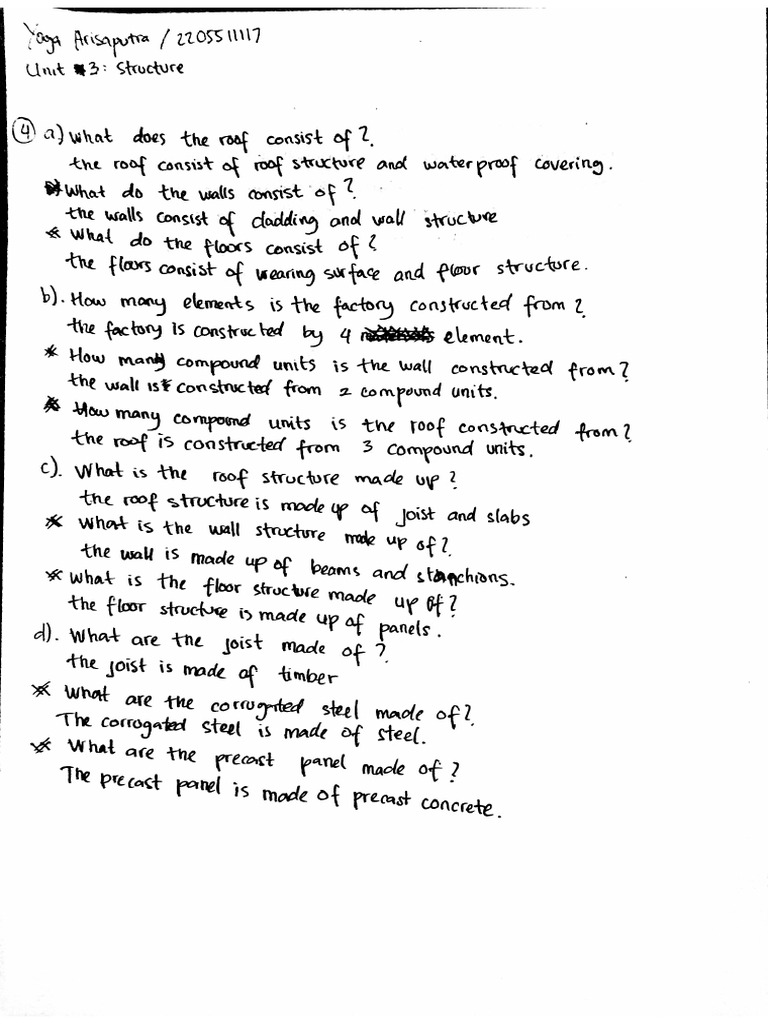 Yoga Arisaputra / 2205511117
Unit 3: Structure
④ a) What does the roof consist of?
the roof consist of roof structure and waterproof covering.
What do the walls consist of?
the walls consist of cladding and wall structure
* What do the floors consist of?
the floors consist of wearing surface and floor structure.
b). How many elements is the factory constructed from?
the factory is constructed by 4 element.
* How many compound units is the wall constructed from?
the wall is constructed from 2 compound units.
* How many compound units is the roof constructed from?
the roof is constructed from 3 compound units.
c). What is the roof structure made up?
the roof structure is made up of joist and slabs
* What is the wall structure made up of?
the wall is made up of beams and stanchions.
* What is the floor structure made up of?
the floor structure is made up of panels.
d). What are the joist made of?
the joist is made of timber
* What are the corrugated steel made of?
The corrogated steel is made of steel.
* What are the precast panel made of?
The precast panel is made of precast concrete.